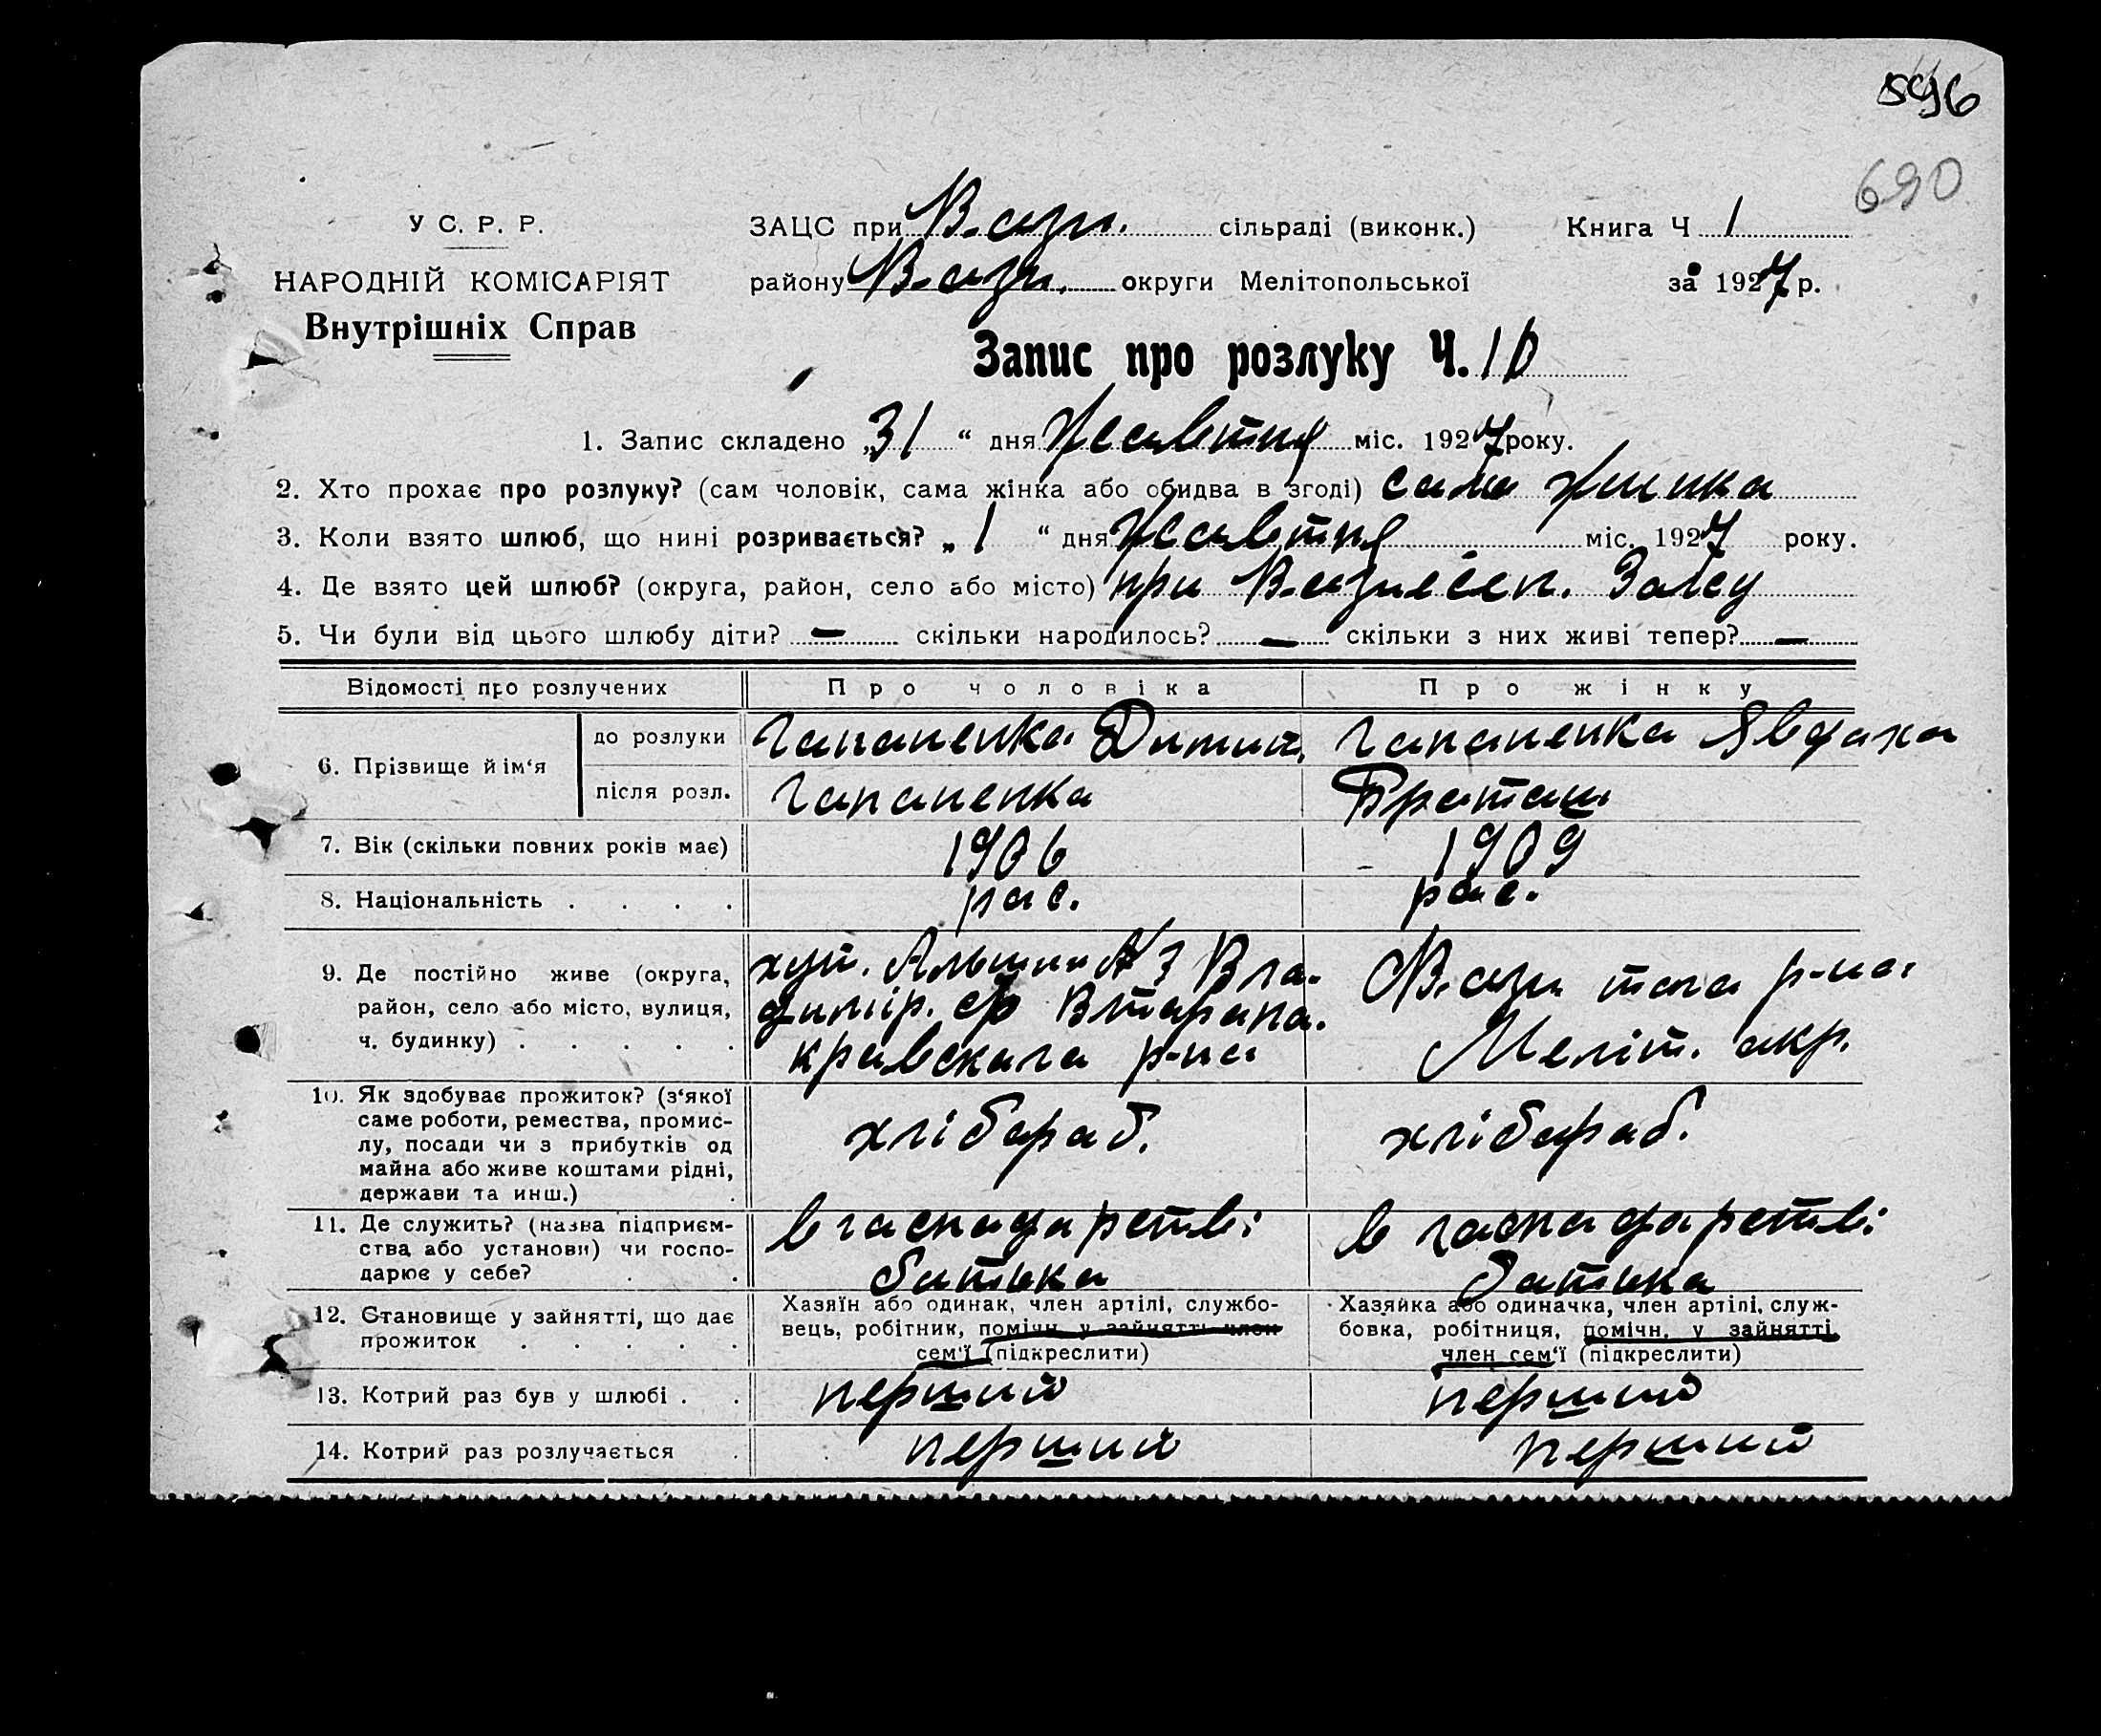 596
690
У С. Р. Р.
НАРОДНІЙ КОМІСАРІЯТ
Внутрішніх Справ
ЗАЦС при В-Возн. сільраді (виконк.) Книга Ч 1
району В-Возн. округи Мелітопольської за 1927 р.
Запис про розлуку Ч. 10
1. Запис складено „31“ дня Жовтня міс. 1927 року.
2. Хто прохає про розлуку? (сам чоловік, сама жінка або обидва в згоді) сама жинка
3. Коли взято шлюб, що нині розривається? „1“ дня Жовтня міс. 1927 року.
4. Де взято цей шлюб? (округа, район, село або місто) при Загсу
5. Чи були від цього шлюбу діти? — скільки народилось? — скільки з них живі тепер? —
Відомості про розлучених Про чоловіка Про жінку
6. Прізвище й ім‘я до розлуки Гапаненко Гапаненко
після розл. Гапаненко Браташ
7. Вік (скільки повних років має) 1906 1909
8. Національність . . . . рос. рос.
9. Де постійно живе (округа, район, село або місто, вулиця, ч. будинку) . . . . .
хут. № 3 Вла-
димір. с/р
р-на
р-на
Меліт. окр.
10. Як здобуває прожиток? (з‘якої саме роботи, ремества, промислу, посади чи з прибутків од майна або живе коштами рідні, держави та инш.) . хлібороб. хлібороб.
11. Де служить? (назва підприємства або установи) чи господарює у себе? . . в господарстві батька в господарстві батька
12. Становище у зайнятті, що дає прожиток . . . . .
Хазяїн або одинак, член артілі, службовець, робітник, помічн. у зайнятті член сем‘ї (підкреслити)
Хазяйка або одиначка, член артілі, службовка, робітниця, помічн. у зайнятті, член сем‘ї (підкреслити)
13. Котрий раз був у шлюбі . . перший перший
14. Котрий раз розлучається . перший перший